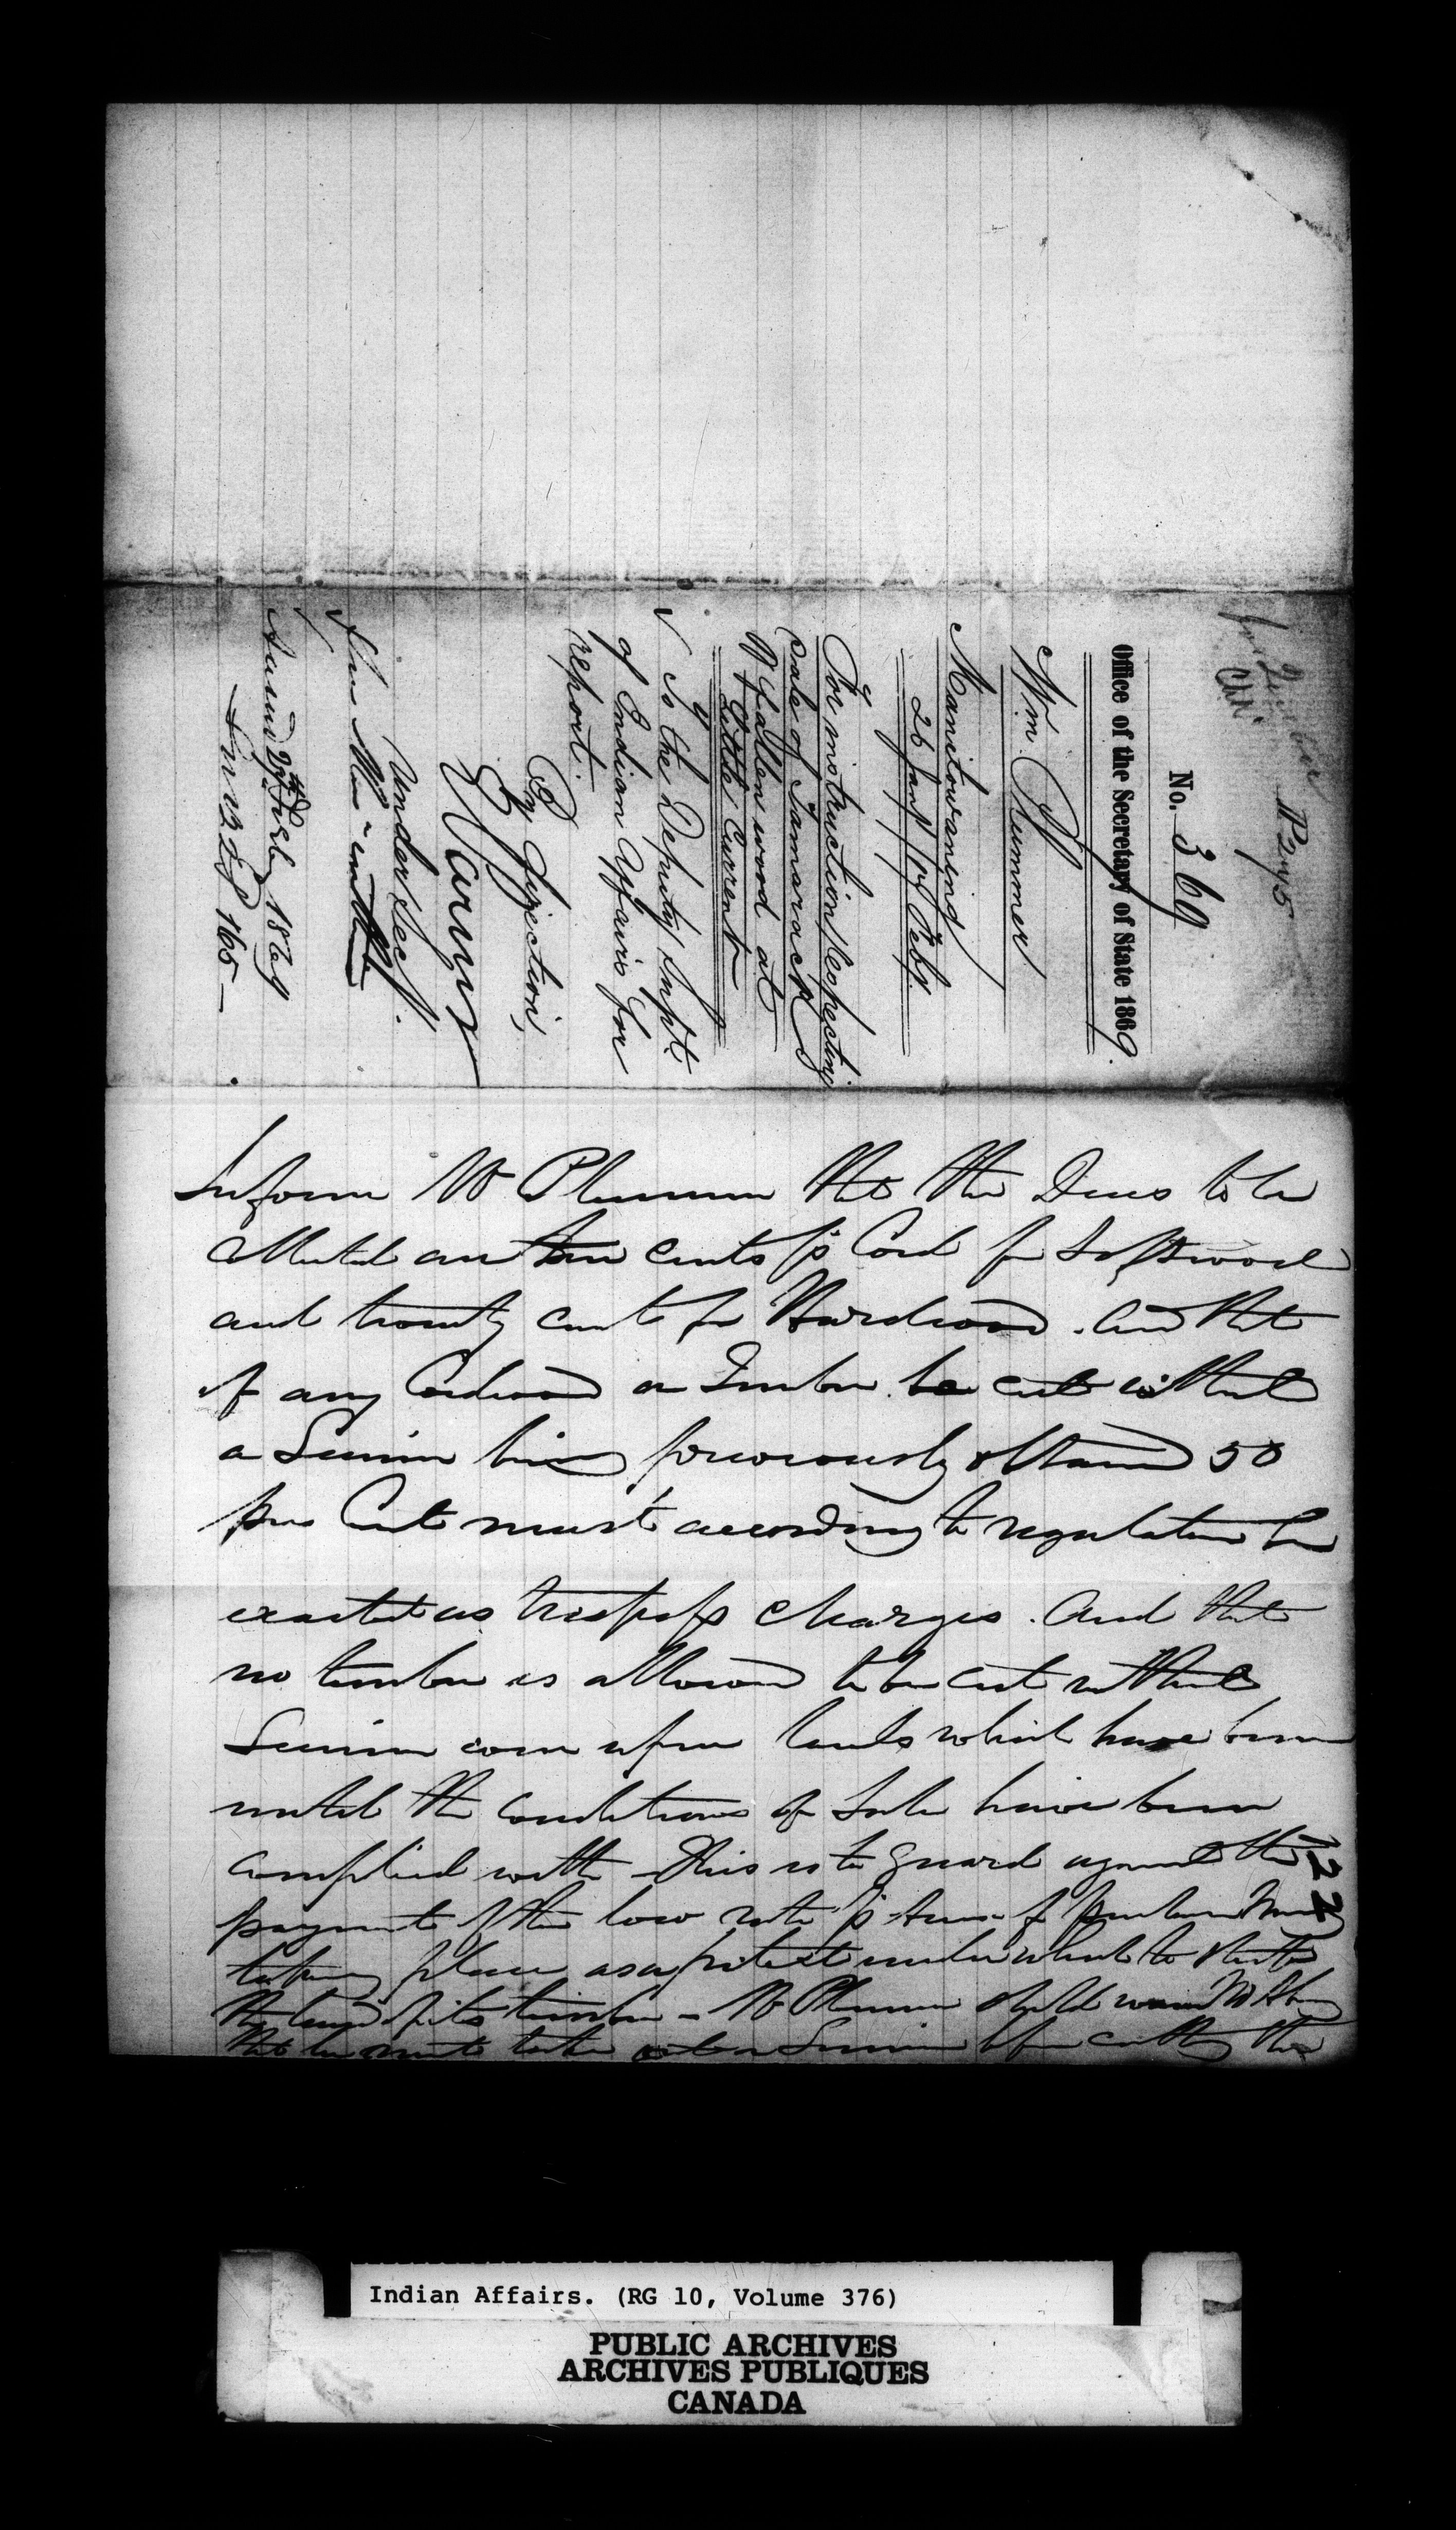 P 245
No. 369
Office of the Secretary of State 1869.
Wm. Plummer
Manitowaning
26 Jany / Feby.
For instructions respecting
sale of Tamarack
& fallen wood at
Little Current
To the Deputy Supt
of Indian Affairs for
report.
By direction,
Under Sec.
1869
165 —
Inform Mr Plummer that the Dues to be
collected are ten cents p Cord for Softwood
and twenty cents for Hardwood. And that
if any Cordwood or Timber be cut without
a License being previously obtained 50
per Cent must according to regulation be
exacted as trespass charges. And that
no timber is allowed to be cut without
License even upon lands which have been
until the conditions of Sale have been
complied with – This is to guard against the
payment of the low rate p Acre of purchase money
taking place as a pretext under which to
the land of its timber – Mr Plummer should warn Mr
that he must take out a License before cutting the
122
Indian Affairs. (RG 10, Volume 376)
PUBLIC ARCHIVES
ARCHIVES PUBLIQUES
CANADA